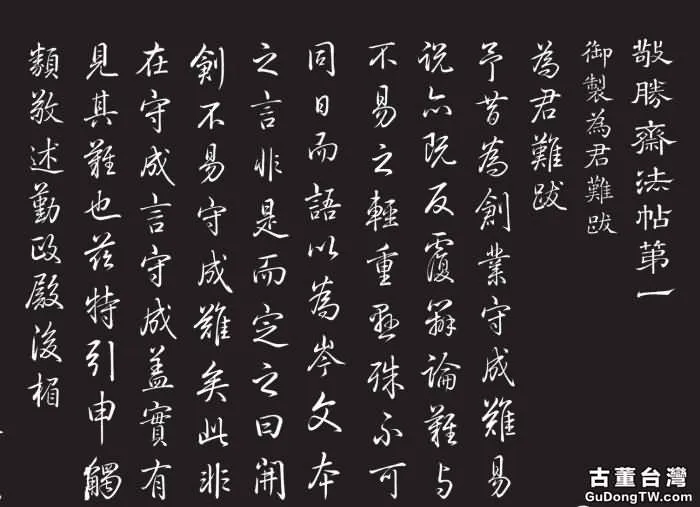 敬勝齋法帖第一
御製為君難跋
為君難跋
予昔為創業守成難易
說亦既反覆辯論難与
不易之輕重懸殊不可
同日而語以為岑文本
之言非是而定之曰開
創不易守成難矣此非
在守成言守成蓋實有
見其難也茲特引申觸
類敬述勤政殿後楣
古董台灣
GuDongTW.com